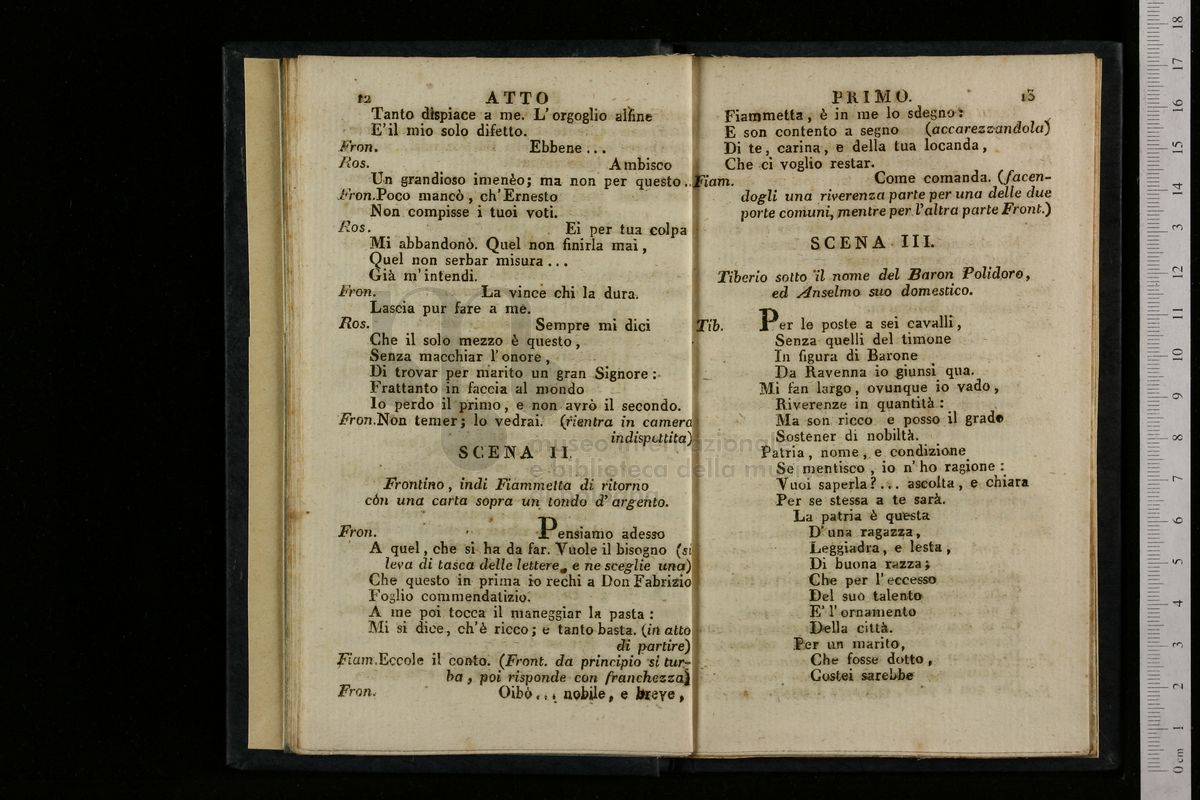 12 ATTO
Tanto dispiace a me. L'orgoglio alfine
E' il mio solo difetto.
Fron. Ebbene...
Ros. Ambisco
Un grandioso imenèo; ma non per questo..
Fron. Poco mancò, ch'Ernesto
Non compisse i tuoi voti.
Ros. Ei per tua colpa
Mi abbandonò. Quel non finirla mai,
Quel non serbar misura...
Già m'intendi.
Fron. La vince chi la dura.
Lascia pur fare a me.
Ros. Sempre mi dici
Che il solo mezzo è questo,
Senza macchiar l'onore,
Di trovar per marito un gran Signore:
Frattanto in faccia al mondo
Io perdo il primo, e non avrò il secondo.
Fron. Non temer; lo vedrai. (rientra in camera
indispettita)
SCENA II.
Frontino, indi Fiammetta di ritorno
còn una carta sopra un tondo d'argento.
Fron. Pensiamo adesso
A quel, che si ha da far. Vuole il bisogno (si
leva di tasca delle lettere, e ne sceglie una)
Che questo in prima io rechi a Don Fabrizio
Foglio commendatizio.
A me poi tocca il maneggiar la pasta:
Mi si dice, ch'è ricco; e tanto basta. (in atto
di partire)
Fiam. Eccole il conto. (Front. da principio si tur-
ba, poi risponde con franchezza)
Fron. Oibò... nobile, e breve,
PRIMO. 13
Fiammetta, è in me lo sdegno:
E son contento a segno (accarezzandola)
Di te, carina, e della tua locanda,
Che ci voglio restar.
Fiam. Come comanda. (facen-
dogli una riverenza parte per una delle due
porte comuni, mentre per l'altra parte Front.)
SCENA III.
Tiberio sotto il nome del Baron Polidoro,
ed Anselmo suo domestico.
Tib. Per le poste a sei cavalli,
Senza quelli del timone
In figura di Barone
Da Ravenna io giunsi qua.
Mi fan largo, ovunque io vado,
Riverenze in quantità:
Ma son ricco e posso il grado
Sostener di nobiltà.
Patria, nome, e condizione
Se mentisco, io n'ho ragione:
Vuoi saperla?... ascolta, e chiara
Per se stessa a te sarà.
La patria è questa
D'una ragazza,
Leggiadra, e lesta,
Di buona razza;
Che per l'eccesso
Del suo talento
E' l'ornamento
Della città.
Per un marito,
Che fosse dotto,
Costei sarebbe
museo internazionale
e biblioteca della musica
0 cm 1 2 3 4 5 6 7 8 9 10 11 12 13 14 15 16 17 18